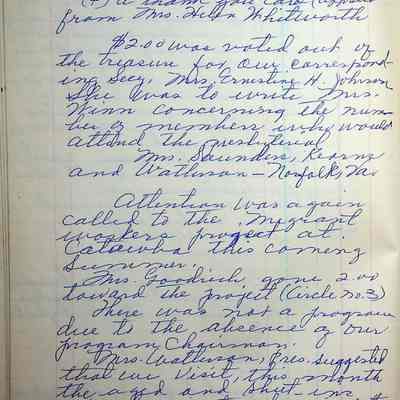 (4) a thank you card
from Mrs. Helen Whitworth
$2.00 was voted out of
the treasure for our correspond-
ing Secy. Mrs. Ernestine H. Johnson
She was to write Mrs.
Winn concerning the num-
ber of members who would
attend the presbyterial
Mrs. Saunders, Kearns
and Watterson - Norfolk, Va
Attention was again
called to the Migrant
workers project at
Catawba this coming
summer.
Mrs. Goodrich gone 2.00
toward the project (Circle no. 3)
There was not a program
due to the absence of our
program Chairman.
Mrs. Watterson, Pres. suggested
that we visit this month
the aged and shut-ins.